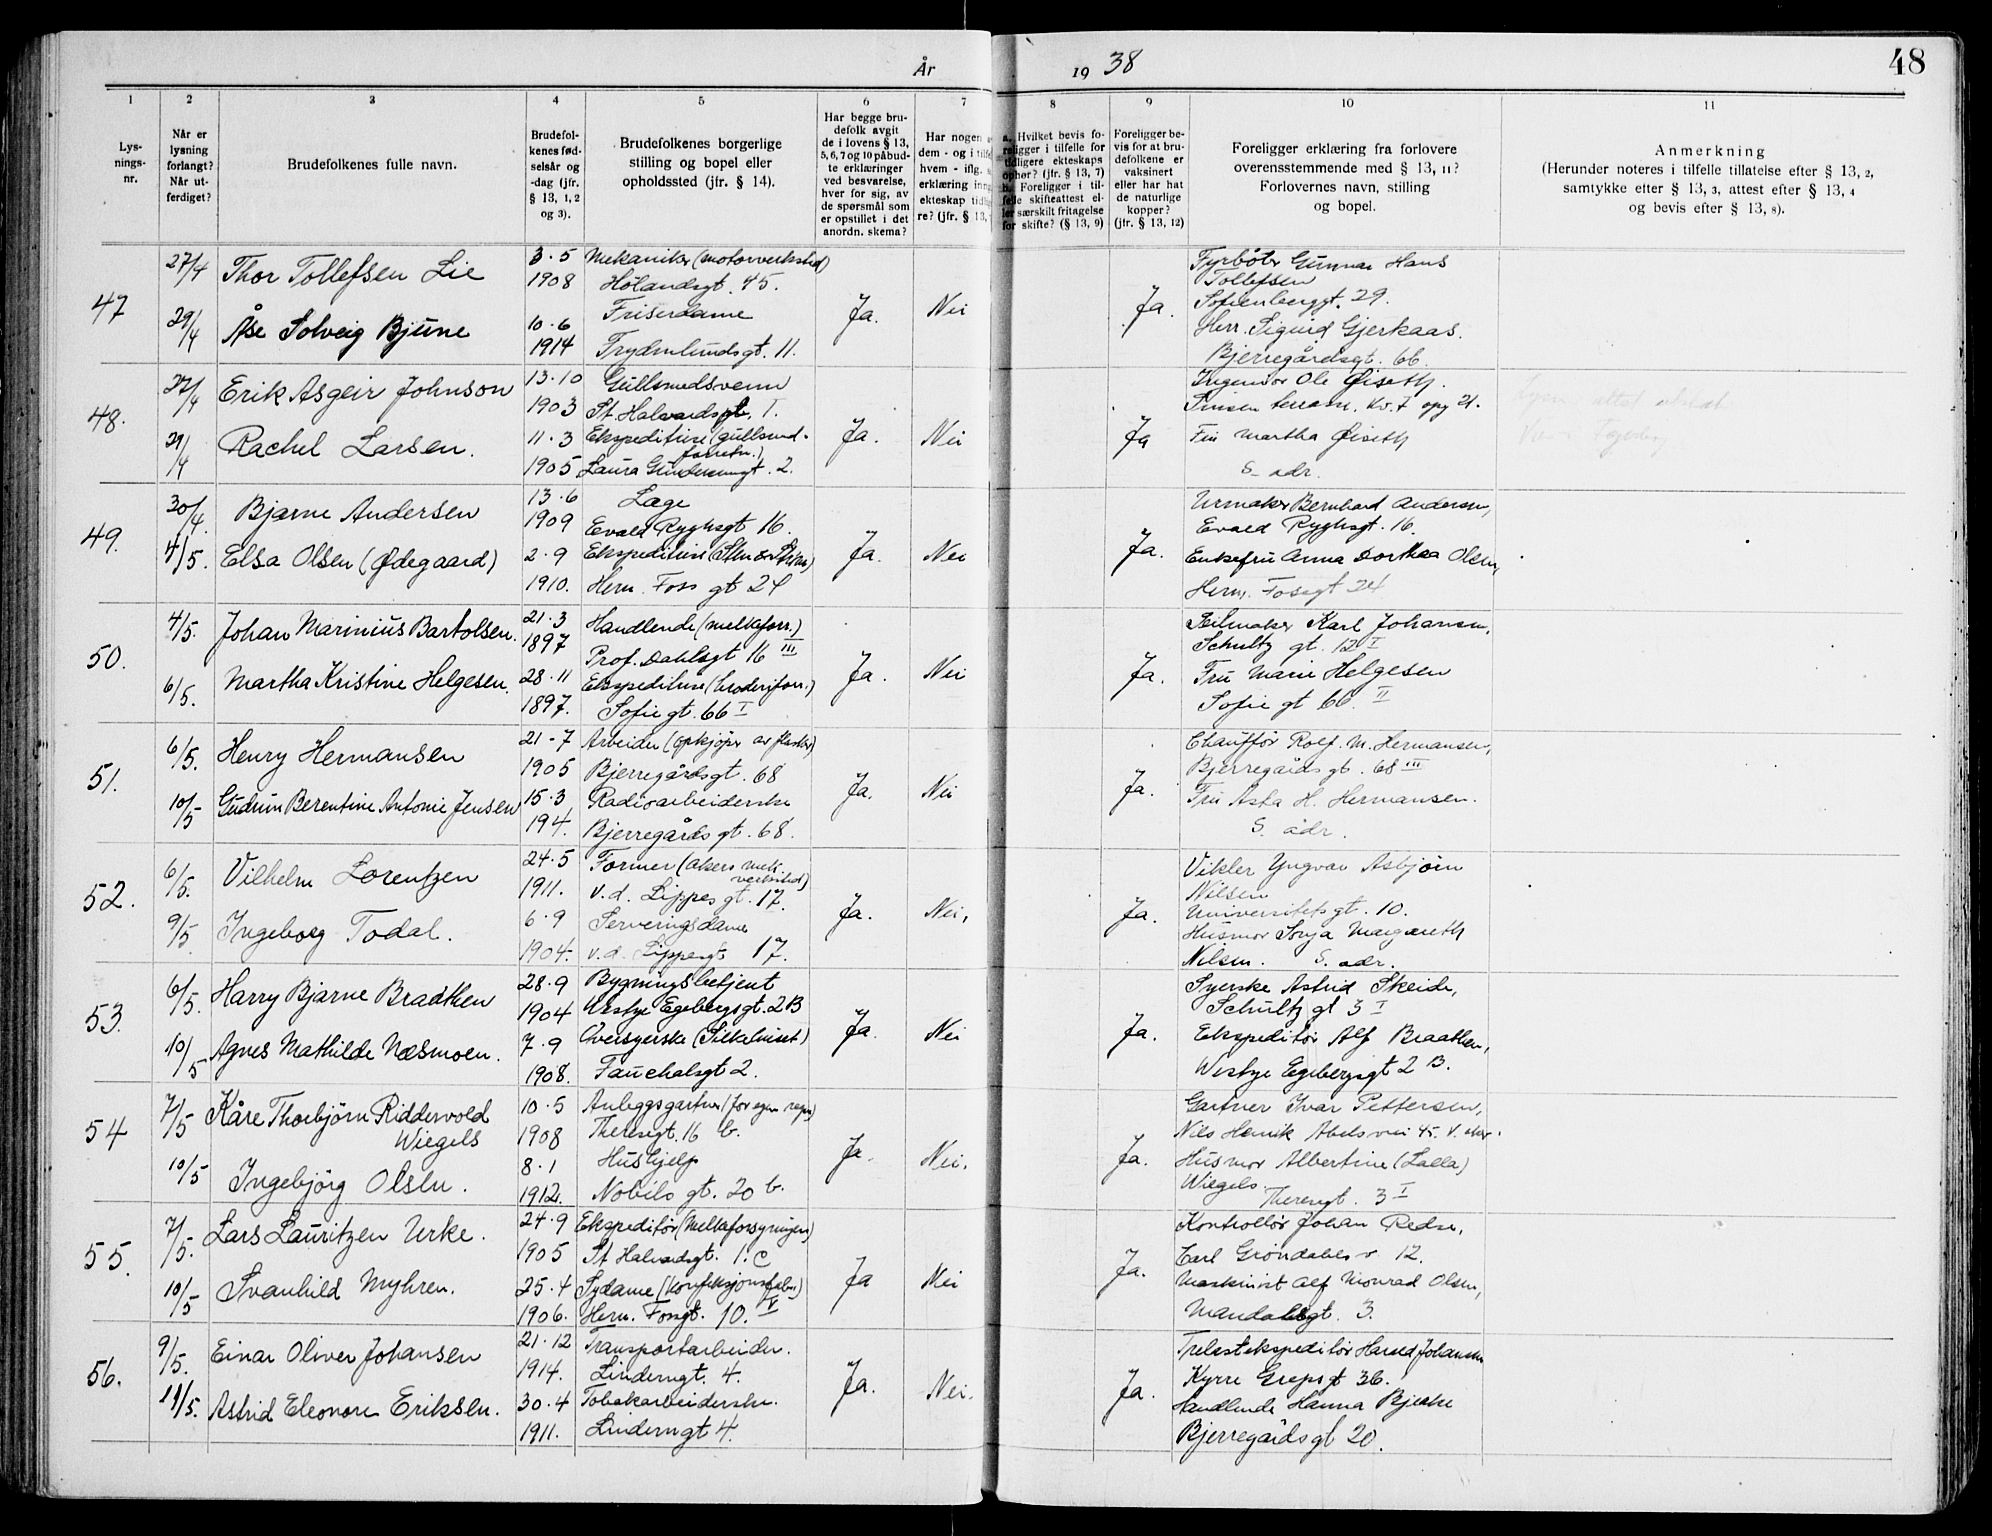 År 19 38
48
1 2 3 4 5 6 7 8 9 10 11
Lys-
nings-
nr.
Når er
lysning
forlangt?
Når ut-
ferdiget?
Brudefolkenes fulle navn.
Brudefol-
kenes fød-
selsår og
-dag (jfr.
§ 13, 1, 2
og 3).
Brudefolkenes borgerlige
stilling og bopel eller
opholdssted (jfr. § 14).
Har begge bru-
defolk avgit
de i lovens § 13,
5, 6, 7 og 10 påbud-
te erklæringer
ved besvarelse,
hver for sig, av
de spørsmål som
er opstillet i det
anordn. skema?
Har nogen
dem - og i tilfe
hvem - iflg.
erklæring inng
ekteskap tidli
re? (jfr. § 13,
a. Hvilket bevis fo-
religger i tilfelle for
tidligere ekteskaps
ophør? (jfr. § 13, 7)
b. Foreligger i til-
felle skifteattest el-
ler særskilt fritagelse
for skifte? (§ 13, 9)
Foreligger be-
vis for at bru-
defolkene er
vaksinert
eller har hat
de naturlige
kopper?
(jfr. § 13, 12)
Foreligger erklæring fra forlovere
overensstemmende med § 13, 11?
Forlovernes navn, stilling
og bopel.
Anmerkning
(Herunder noteres i tilfelle tillatelse efter § 13, 2,
samtykke efter § 13, 3, attest efter § 13, 4
og bevis efter § 13, 8).
47
27/4 Thor Tollefsen Lie
3.5
1908
Mekaniker (motorverksted)
Hølandsgt. 45.
29/4 Åse Solveig Bjune
10.6
1914
Friserdame
Frydenlundsgt. 11.
Ja. Nei Ja.
Fyrbøter Gunnar Hans
Tollefsen
Sofienberggt. 29.
Herr. Sigurd Gjerkaas.
Bjerregårdsgt. 66.
48.
27/4 Erik Asgeir Johnson
13.10
1903
Gullsmedsvenn
St. Halvardsgt. 1.
29/4 Rachel Larsen.
11.3
1905
Ekspeditrise (gullsmed-
forretn.)
Laura Gundersensgt. 2.
Ja. Nei Ja
Ingeniør Ole Øiseth.
Sinsen terrasse. Kv. F opg 21.
Fru Martha Øiseth
S. adr.
49.
30/4. Bjarne Andersen
13.6
1909
Læge
Evald Ryghsgt 16.
4/5. Elsa Olsen (Ødegaard)
2.9
1910.
Ekspeditrise (Steen & Strøm)
Herm. Foss gt 24
Ja. Nei Ja.
Urmaker Bernhard Andersen,
Evald Ryghsgt. 16.
Enkefru Anna Dorthea Olsen,
Herm. Fossgt 24
50.
4/5. Johan Marinius Bartolsen.
21.3
1897
Handlende (melkeforr.)
Prof. Dahlsgt 16 III
6/5. Martha Kristine Helgesen.
28.11
1897.
Ekspeditrise (broderiforr.)
Sofie gt. 66 I
Ja. Nei Ja.
Seilmaker Karl Johansen,
Schultz gt. 12 I
Fru Marie Helgesen
Sofie gt 66. II
51.
6/5. Henry Hermansen
21-7
1905
Arbeider (opkjøper av flasker)
Bjerregårdsgt. 68
10/5 Gudrun Berentine Antonie Jensen
15.3
194.
Radioarbeiderske
Bjerregårds gt. 68.
Ja. Nei Ja.
Chauffør Rolf. M. Hermansen,
Bjerregårdsgt. 68 III
Fru Asta H. Hermansen.
S. adr.
52.
6/5. Vilhelm Lorentzen
24.5
1911.
Former (Akers mek.
verksted)
v.d. Lippes gt. 17.
9/5 Ingeborg Todal.
6.9
1904.
Serveringsdame
v.d. Lippesgt 17.
Ja. Nei. Ja.
Vikler Yngvar Asbjørn
Nilsen
Universitetsgt. 10.
Husmor Sonja Margareth
Nilsen. S. adr.
53.
6/5. Harry Bjarne Braathen
28.9
1904
Bygningsbetjent
Westye Egebergsgt. 2 B
10/5 Agnes Mathilde Næsmoen.
7.9
1908.
Oversyerske (Silkehuset)
Fauchalsgt 2.
Ja. Nei Ja.
Syerske Astrid Skeide,
Schultz gt 3 I
Ekspeditør Alf Braathen,
Westye Egebergsgt 2 B.
54
7/5 Kåre Thorbjørn Riddervold
Wiegels
10.5
1908
Anleggsgartner (for egen regn.)
Theresgt. 16 b.
10/5 Ingebjörg Olsen.
8.1
1912.
Hushjelp
Nobels gt. 20 b.
Ja. Nei. Ja.
Gartner Ivar Pettersen,
Nils Henrik Abels vei 45. V. Aker.
Husmor Albertine (Lalla)
Wiegels
Theresgt. 3 I
55.
7/5. Lars Lauritzen Urke.
24.9
1905
Ekspeditør (Melkeforsyningen)
St Halvardsgt. 1. C
10/5 Svanhild Myhren.
25.4
1906.
Sydame (Konfeksjonsfabr.)
Herm. Fossgt. 10. V
Ja Nei Ja.
Kontrollør Johan Redse,
Carl Grøndahls v. 12.
Maskinist Alf Monrad Olsen,
Mandalsgt. 3.
56.
9/5. Einar Oliver Johansen
21.12
1914.
Transportarbeider.
Linderngt. 4.
11/5. Astrid Eleonore Eriksen.
30.4
1911.
Tobakarbeiderske.
Linderngt 4.
Ja. Nei. Ja.
Trelastekspeditør Harald Johansen
Kyrre Grepsgt 36.
Handlende Hanna Bjerke
Bjerregårdsgt 20.